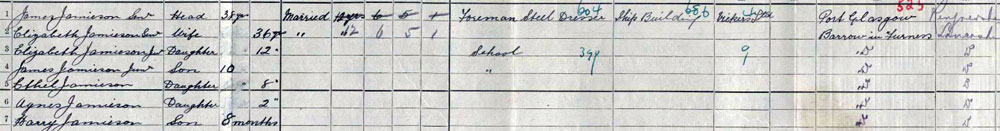 1 James Jamieson Senr Head 38 yr Married 12 yrs 6 5 1 Foreman Steel Dresser 604 Ship Building 656 Vickers Ltd Port Glasgow 525
2 Elizabeth Jamieson Senr Wife 36 yr " 12 6 5 1 Barrow in Furness
3 Elizabeth Jamieson Jr Daughter 12 " School 399 9 Do Do
4 James Jamieson Junr Son 10 " Do Do
5 Ethel Jamieson Daughter " 8 " Do Do
6 Agnes Jamieson Daughter 2 " Do Do
7 Harry Jamieson Son 8 months Do Do